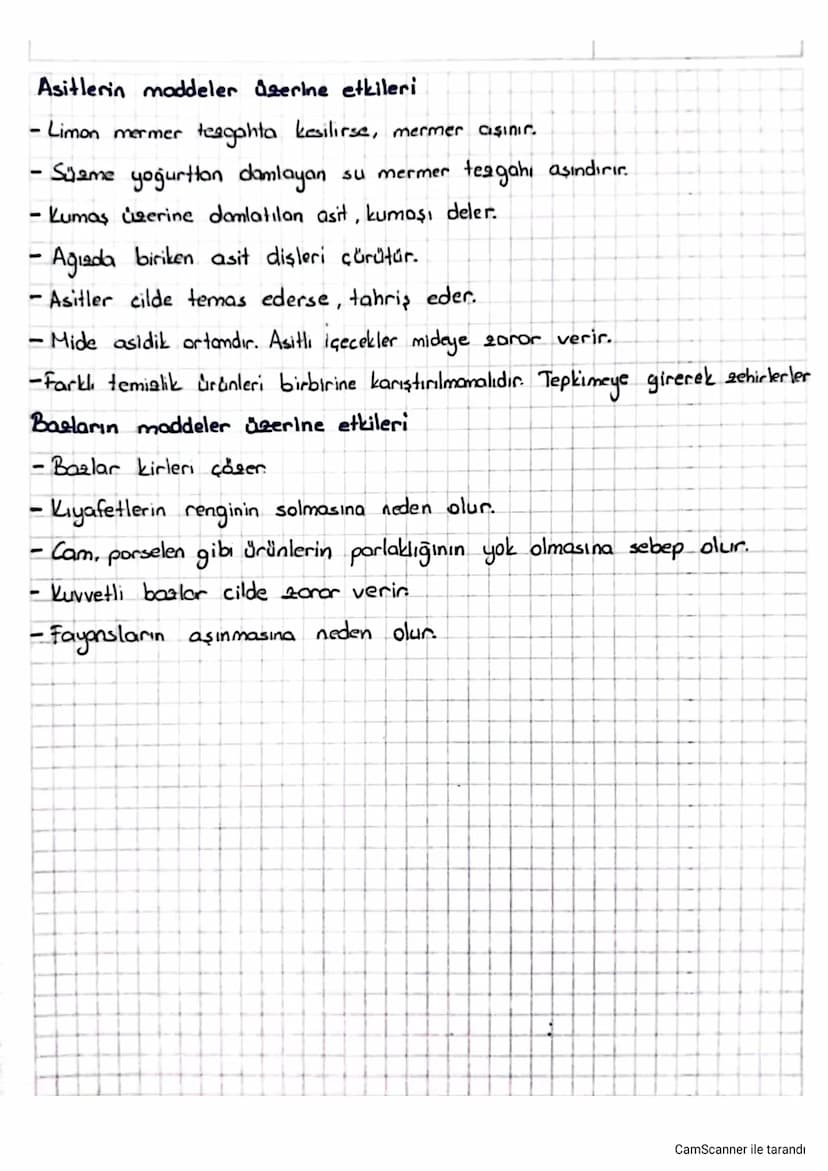 Asitlerin maddeler üzerine etkileri
- Limon mermer tezgahta kesilirse, mermer aşınır.
- Süzme yoğurttan damlayan su mermer tezgahı aşındırır.
- Kumaş üzerine damlatılan asit, kumaşı deler.
- Ağızda biriken asit dişleri çürütür.
- Asitler cilde temas ederse, tahriş eder.
- Mide asidik ortamdır. Asitli içecekler mideye zarar verir.
- Farklı temizlik ürünleri birbirine karıştırılmamalıdır. Tepkimeye girerek zehirlerler
Bazların maddeler üzerine etkileri
- Bazlar kirleri çözer.
- Kıyafetlerin renginin solmasına neden olur.
- Cam, porselen gibi ürünlerin parlaklığının yok olmasına sebep olur.
- Kuvvetli bazlar cilde zarar verir.
- Fayansların aşınmasına neden olur.
CamScanner ile tarandı